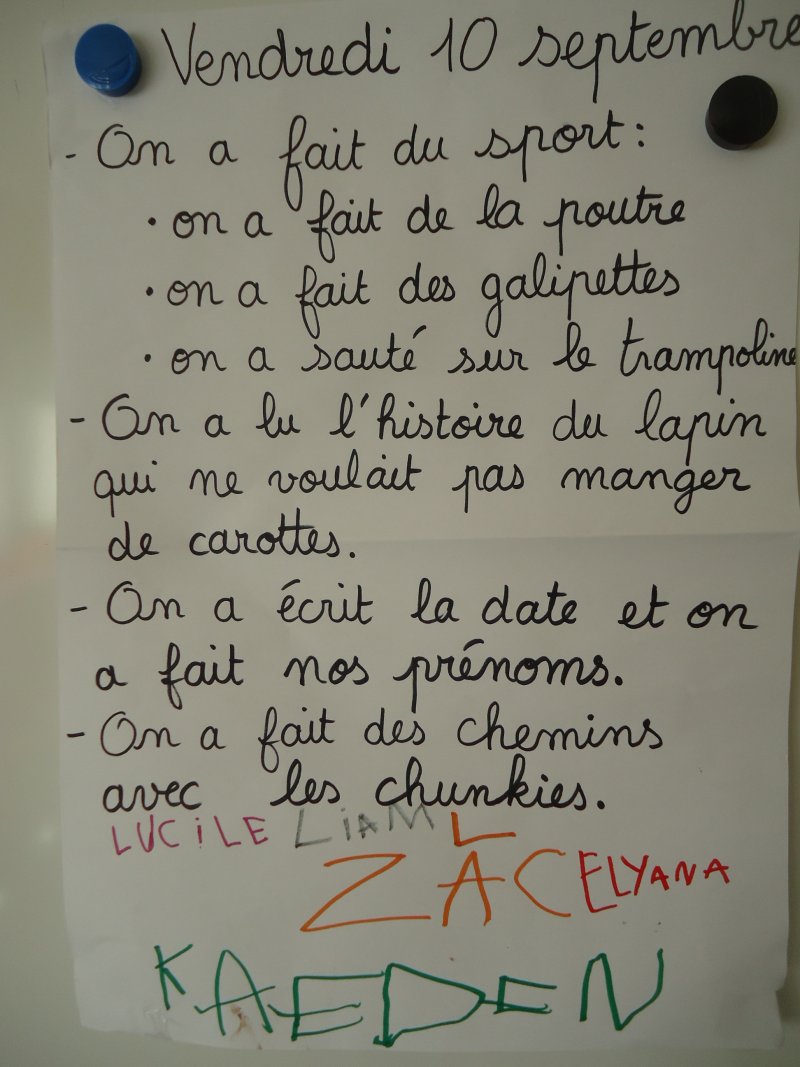 Vendredi 10 septembre
- On a fait du sport:
• on a fait de la poutre
• on a fait des galipettes
• on a sauté sur le trampoline
- On a lu l'histoire du lapin
qui ne voulait pas manger
de carottes.
- On a écrit la date et on
a fait nos prénoms.
- On a fait des chemins
avec les chunkies.
LUCiLE LiAM L
ZAC ELYANA
KAEDEN